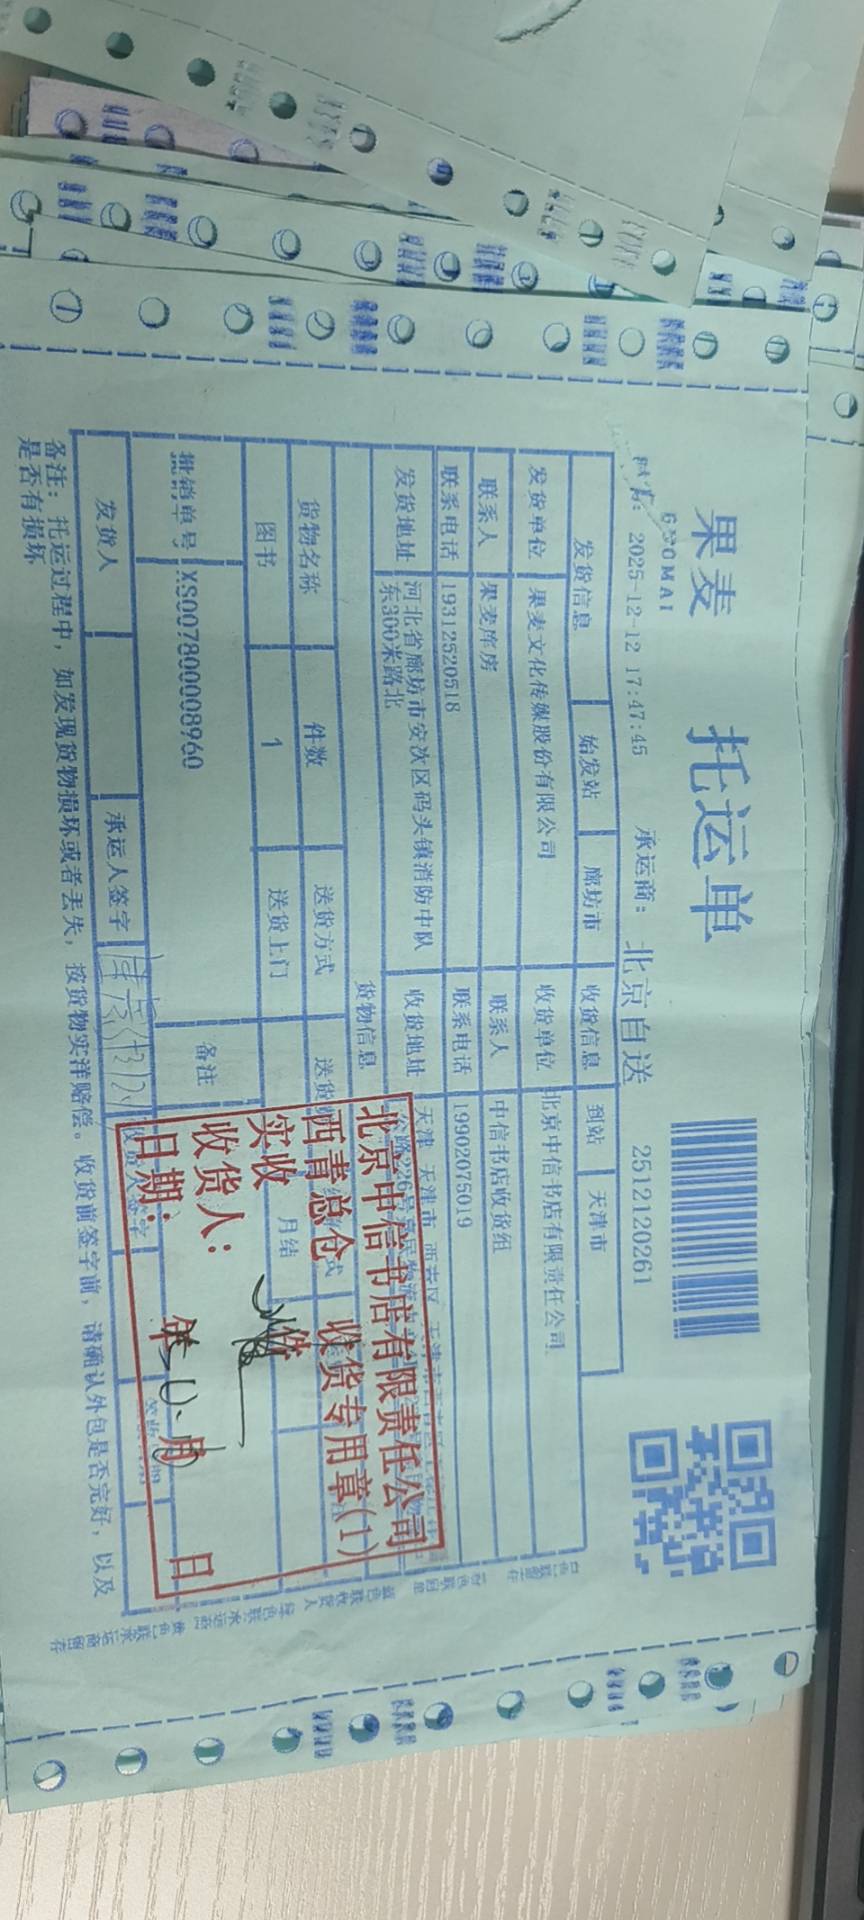 果麦 托运单
GUOMAI
2025-12-12 17:47:45 承运商: 北京自送 2512120261
发货信息 始发站 廊坊市 收货信息 到站 天津市
发货单位 果麦文化传媒股份有限公司 收货单位 北京中信书店有限责任公司
联系人 果麦库房 联系人 中信书店收货组
联系电话 19312520518 联系电话 19902075019
发货地址 河北省廊坊市安次区码头镇消防中队 收货地址 天津 天津市 西青区
东300米路北
货物信息
货物名称 件数 送货方式
图书 1 送货上门 月结
批销单号 XS007800008960 备注
发货人 承运人签字 收货人签字
备注: 托运过程中, 如发现货物损坏或者丢失, 按货物实洋赔偿。收货前签字前, 请确认外包是否完好, 以及
是否有损坏
北京中信书店有限责任公司
西青总仓 收货专用章(1)
实收 件
收货人:
日期: 年 月 日
白色联留存
蓝色联收货人
绿色联承运商
黄色联承运商留存